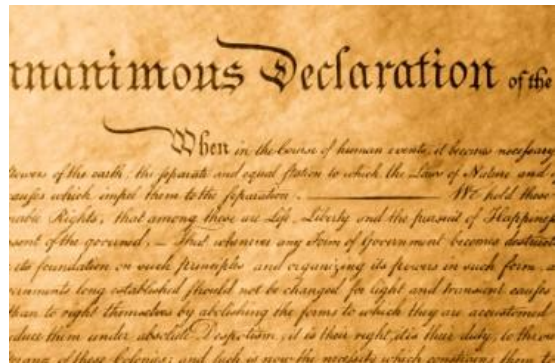 unanimous Declaration of the
When in the Course of human events, it becomes necessary
Powers of the earth, the separate and equal station to which the Laws of Nature and of
causes which impel them to the separation. We hold these
nable Rights, that among these are Life, Liberty and the pursuit of Happine
sent of the governed, — That whenever any Form of Government becomes destruc
its foundation on such principles and organizing its powers in such form, a
vernments long established should not be changed for light and transient causes
than to right themselves by abolishing the forms to which they are accustomed
educe them under absolute Despotism, it is their right, it is their duty, to thro
of these Colonies; and such is now the necessity which constrains